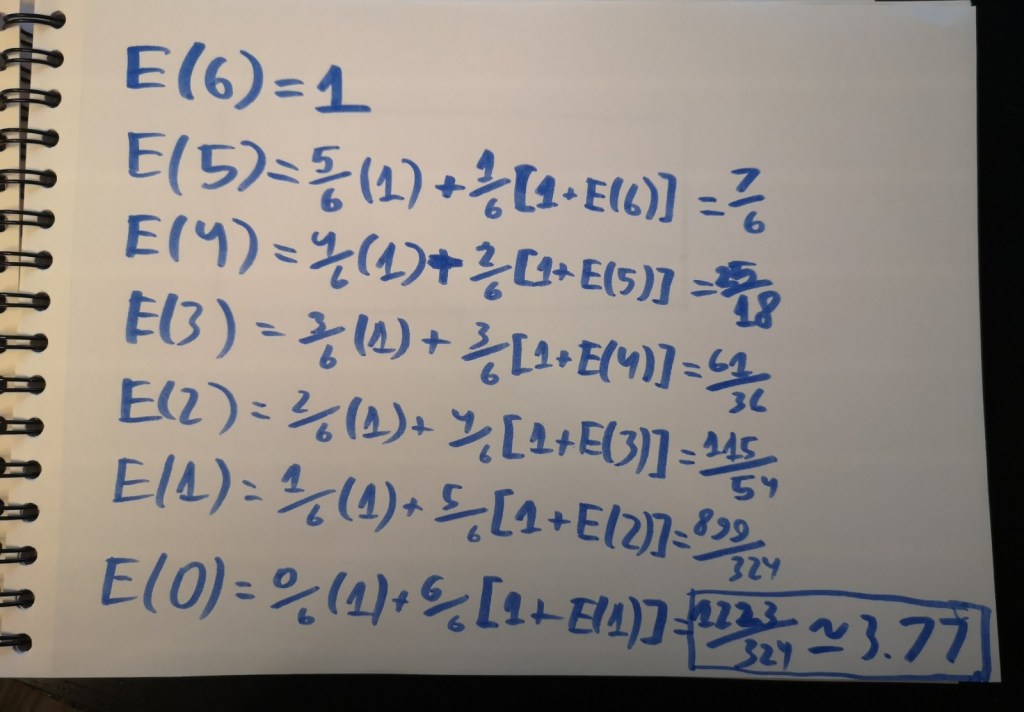 E(6) = 1
E(5) = 5/6 (1) + 1/6 [1 + E(6)] = 7/6
E(4) = 4/6 (1) + 2/6 [1 + E(5)] = 25/18
E(3) = 3/6 (1) + 3/6 [1 + E(4)] = 61/36
E(2) = 2/6 (1) + 4/6 [1 + E(3)] = 115/54
E(1) = 1/6 (1) + 5/6 [1 + E(2)] = 899/324
E(0) = 0/6 (1) + 6/6 [1 + E(1)] = 1223/324 ≃ 3.77